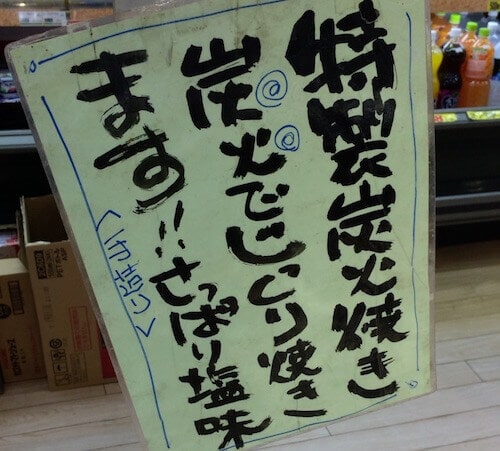 特製炭火焼き
炭火でじっくり焼き
ます!!さっぱり塩味